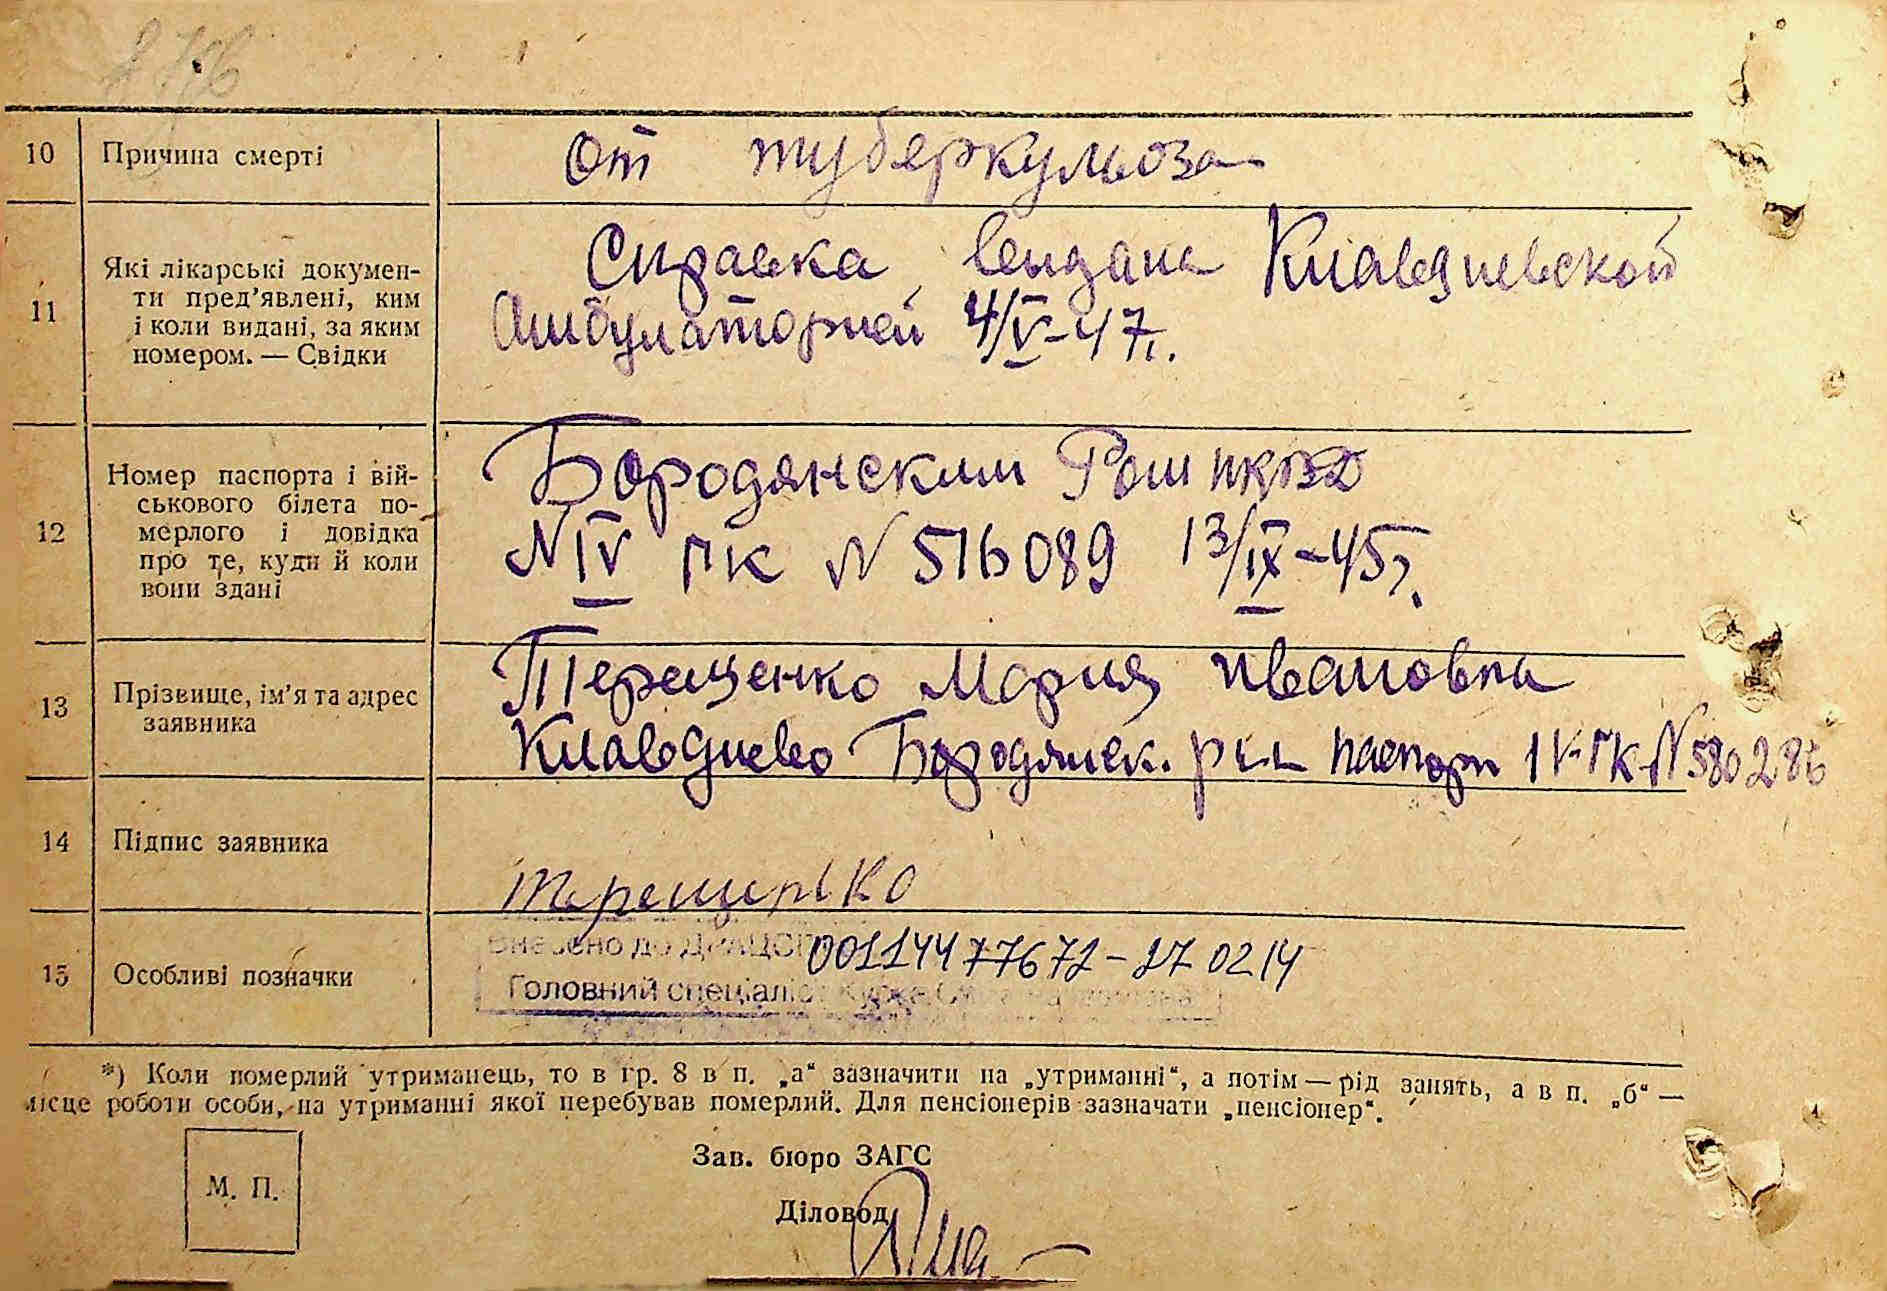 10 Причина смерті От туберкульоза
11 Які лікарські докумен-
ти пред'явлені, ким
і коли видані, за яким
номером. — Свідки
Справка выдана Клавдиевской
Амбулаторией 4/IV-47г.
12 Номер паспорта і вій-
ськового білета по-
мерлого і довідка
про те, куди й коли
вони здані
Бородянским Рош НКВД
N IV ПК N 516089 13/IX-45г.
13 Прізвище, ім'я та адрес
заявника
Терещенко Мария Ивановна
Клавдиево Бородянск. р-н паспорт IV-ПК-N 580286
14 Підпис заявника
Терещенко
15 Особливі позначки
Внесено до ДРАЦСГ 00114477672-27 02 14
Головний спеціаліст
*) Коли померлий утриманець, то в гр. 8 в п. „а“ зазначити на „утриманні“, а потім — рід занять, а в п. „б“ —
місце роботи особи, на утриманні якої перебував померлий. Для пенсіонерів зазначати „пенсіонер“.
Зав. бюро ЗАГС
М. П.
Діловод